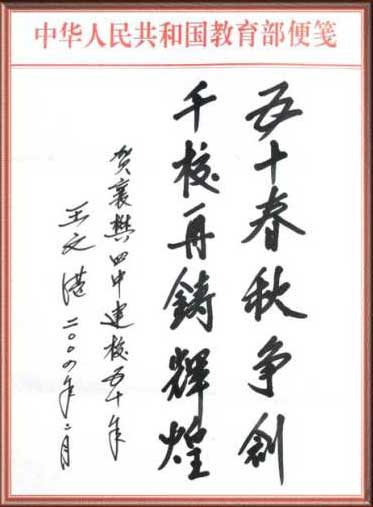 中华人民共和国教育部便笺
五十春秋争创
千校再鑄輝煌
贺襄樊四中建校五十年
王文湛 二〇〇四年二月